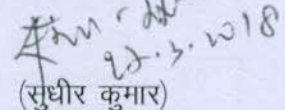 27.3.2018
(सुधीर कुमार)